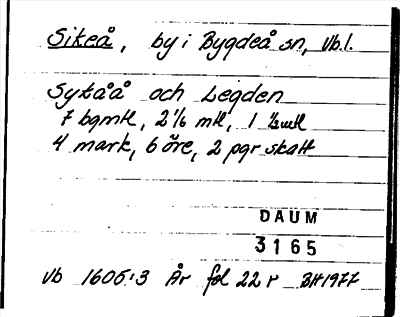 Sikeå, by i Bygdeå sn, Vb.l.
Sykåå och Legden
7 bgmtl, 2 1/6 mtl, 1 1/2 mtl
4 mark, 6 öre, 2 pgr skatt
DAUM
3165
Vb 1606:3 År fol 22 r BH1977